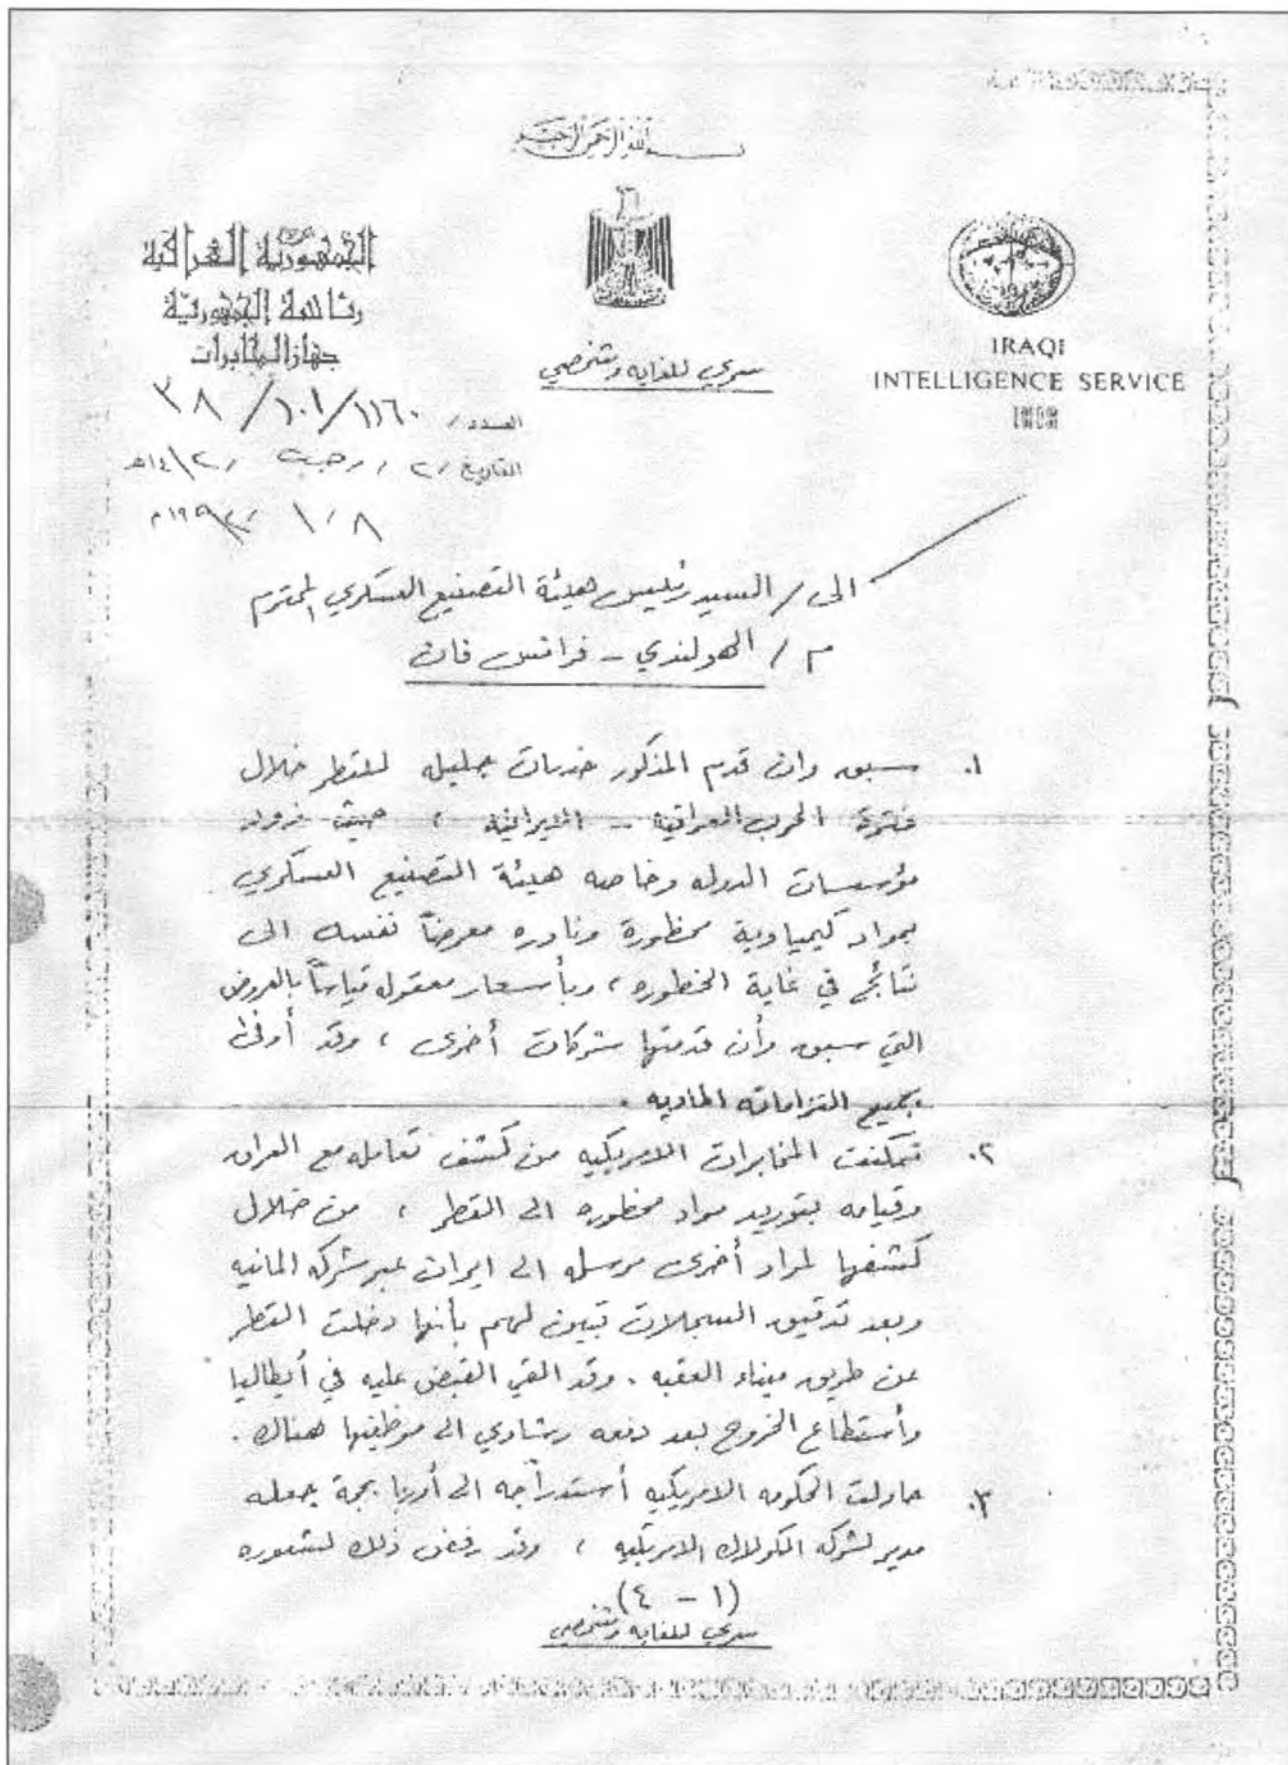 بسم الله الرحمن الرحيم
الجمهورية العراقية
رئاسة الجمهورية
جهاز المخابرات
IRAQI
INTELLIGENCE SERVICE
سري للغايه وشخصي
العدد / ١١٦٠/١٠١/٣٨
التاريخ / ٢ / رجب / ١٤١٢هـ
٨ / ١ / ١٩٩٢م
الى / السيد رئيس هيئة التصنيع العسكري المحترم
م / الهولندي - فرانس فان
١. سبق وان قدم المذكور خدمات جليله للقطر خلال
فترة الحرب العراقيه - الايرانيه ، حيث زود
مؤسسات الدوله وخاصه هيئة التصنيع العسكري
بمواد كيمياوية محظورة ونادره معرضاً نفسه الى
نتائج في غاية الخطوره ، وبأسعار معقوله قياساً بالعروض
التي سبق وأن قدمتها شركات أخرى ، وقد أوفى
بجميع التزاماته الماديه .
٢. تمكنت المخابرات الامريكيه من كشف تعامله مع العراق
وقيامه بتوريد مواد محظوره الى القطر ، من خلال
كشفها لمواد أخرى مرسله الى ايران عبر شركه المانيه
وبعد تدقيق السجلات تبين لهم بأنها دخلت القطر
عن طريق ميناء العقبه . وقد القي القبض عليه في أيطاليا
وأستطاع الخروج بعد دفعه رشاوي الى موظفيها هناك .
٣. حاولت الحكومه الامريكيه أستدراجه الى أوربا بحجة جعله
مدير لشركه الامريكيه ، وقد رفض ذلك لشعوره
(١ - ٤)
سري للغايه وشخصي